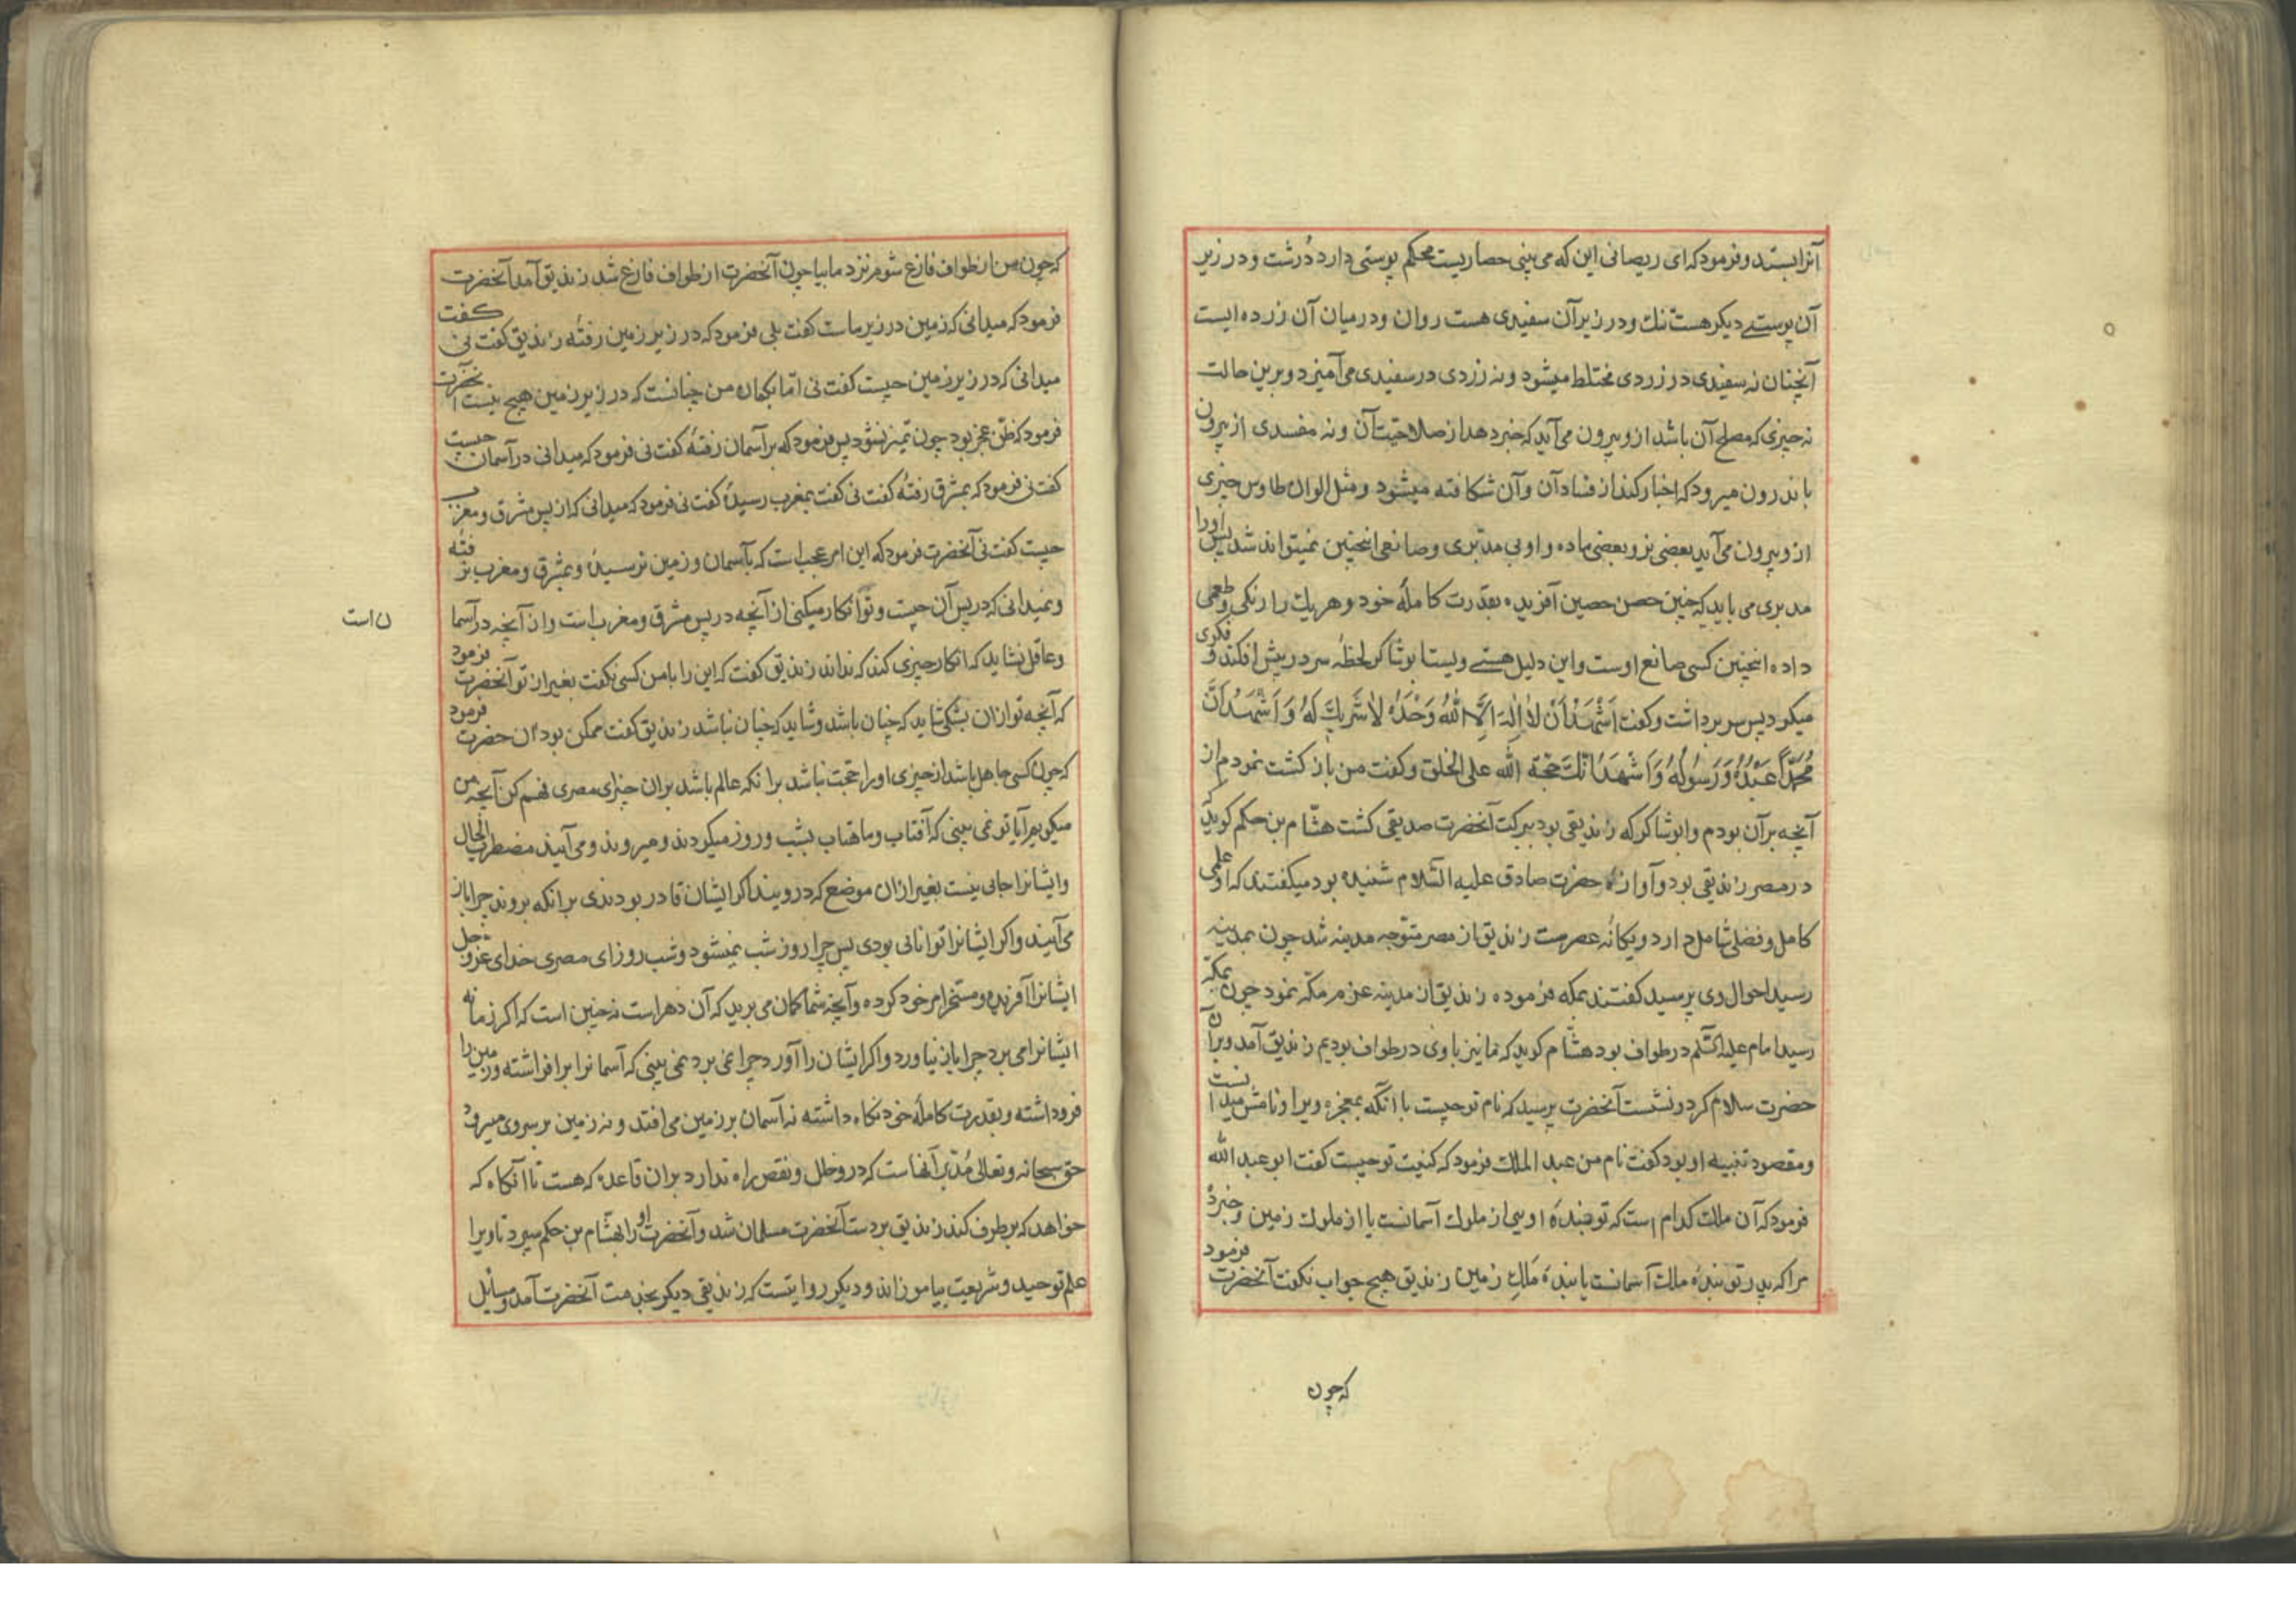 آنرا بستد و فرمود که ای ریصانی این که می بینی حصاریست محکم پوستی دارد دُرشت و در زیر
آن پوستے دیکر هست تنک و در زیر آن سفیدی هست روان و در میان آن زرده ایست
آنچنان نه سفیدی در زردی مختلط میشود و نه زردی در سفیدی می آمیزد و برین حالت
نه چیزی که مصلح آن باشد ازو بیرون می آید که خبر دهد از صلاحیت آن و نه مفسدی از بیرون
باندرون میرود که اخبار کند از فساد آن و آن شکافته میشود و مثل الوان طاوس چیزی
ازو بیرون می آید بعضی نر و بعضی ماده و او بی مدبّری و صانعی اینچنین نمیتواند شد پس اورا
مدبری می باید که چنین حصن حصین آفریده بقدرت کاملۀ خود و هر یک را رنکی و طعمی
داده اینچنین کسی صانع اوست و این دلیل هستے ویست ابوشاکر لحظۀ سر در پیش افکند و فکری
میکرد پس سر برداشت و کفت اَشْهَدُ اَنْ لاٰ اِلٰهَ اِلاَّ اللّٰهُ وَحْدَهُ لاٰ شَرِیكَ لَهُ وَ اَشْهَدُ اَنَّ
مُحَمَّداً عَبْدُهُ وَ رَسُولُهُ وَ اَشْهَدُ اَنَّكَ حجّة الله علی الخلق و کفت من باز کشت نمودم از
آنچه بر آن بودم و ابوشاکر که زندیقی بود ببرکت آنحضرت صدیقی کشت هشّام بن حکم کوید که
در مصر زندیقی بود و آوازۀ حضرت صادق علیه السّلام شنیده بود میکفتند که او علمی
کامل و فضلی شامل دارد و یکانۀ عصرست زندیق از مصر متوجه مدینه شد چون بمدینه
رسید احوال وی پرسید کفتند بمکه فرموده زندیق از مدینه عزم مکّه نمود چون بمکّه
رسید امام علیه السّلم در طواف بود هشّام کوید که ما نیز با وی در طواف بودیم زندیق آمد و بر آن
حضرت سلام کرد و نشست آنحضرت پرسید که نام تو چیست با انکه بمعجزه ویرا و نامش میدانست
و مقصود تنبیه او بود کفت نام من عبد الملک فرمود که کنیت تو چیست کفت ابو عبد الله
فرمود که آن ملک کدام است که تو بندۀ اویی از ملوك آسمانست یا از ملوك زمین و خبر ده
مرا که پدر تو بندۀ ملک آسمانست یا بندۀ مَلِكِ زمین زندیق هیچ جواب نکفت آنحضرت فرمود
که چون
که چون من از طواف فارغ شوم نزد ما بیا چون آنحضرت از طواف فارغ شد زندیق آمد آنحضرت
فرمود که میدانی که زمین در زیر ماست کفت بلی فرمود که در زیر زمین رفتۀ زندیق کفت نی کفت
میدانی که در زیر زمین چیست کفت نی امّا بکمان من چنانست که در زیر زمین هیچ نیست آنحضرت
فرمود که ظن عجز بود چون تمیز نشود پس فرمود که بر آسمان رفتۀ کفت نی فرمود که میدانی در آسمان چیست
کفت نی فرمود که بمشرق رفتۀ کفت نی کفت بمغرب رسیدۀ کفت نی فرمود که میدانی که از پس مشرق و مغرب
چیست کفت نی آنحضرت فرمود که این امر عجب است که بآسمان و زمین نرسیدۀ و بمشرق و مغرب نرفتۀ
و نمیدانی که در پس آن چیست و تو انکار میکنی از آنچه در پس مشرق و مغرب است و از آنچه در آسما
ن است
و عاقل نشاید که انکار چیزی کند که نداند زندیق کفت که این را با من کسی نکفت بغیر از تو آنحضرت فرمود
که آنچه تو از آن بشکی شاید که چنان باشد و شاید که چنان نباشد زندیق کفت ممکن بود آن حضرت فرمود
که چون کسی جاهل باشد از چیزی او را حجت نباشد بر انکه عالم باشد بران چیز ای مصری فهم کن آنچه من
میکویم آیا تو نمی بینی که آفتاب و ماهتاب بشب و روز میکردند و میروند و می آیند مضطر الحال
و ایشانرا جایی نیست بغیر از ان موضع که درویند اکر ایشان قادر بودندی بر انکه بروند چرا باز
می آیند و اکر ایشانرا توانایی بودی پس چرا روز شب نمیشود و شب روز ای مصری خدای عزّ و جل
ایشانرا آفریده و مسخّر امر خود کرده و آنچه شما کمان می برید که آن دهر است نه چنین است که اکر زمانه
ایشانرا می برد چرا باز نیاورد و اکر ایشان را آورد چرا نمی برد نمی بینی که آسمانرا برافراشته و زمین را
فرو داشته و بقدرت کاملۀ خود نکاه داشته نه آسمان بر زمین می افتد و نه زمین بر سروی میرود
حق سبحانه و تعالی مُدبّر آنهاست که درو خلل و نقص راه ندارد بران قاعده که هست تا آنکاه که
خواهد که بر طرف کند زندیق بر دست آنحضرت مسلمان شد و آنحضرت او را بهشّام بن حکم سپرد تا ویرا
علم توحید و شریعت بیاموزاند و دیکر روایتست که زندیقی دیکر بخدمت آنحضرت آمد و مسائل